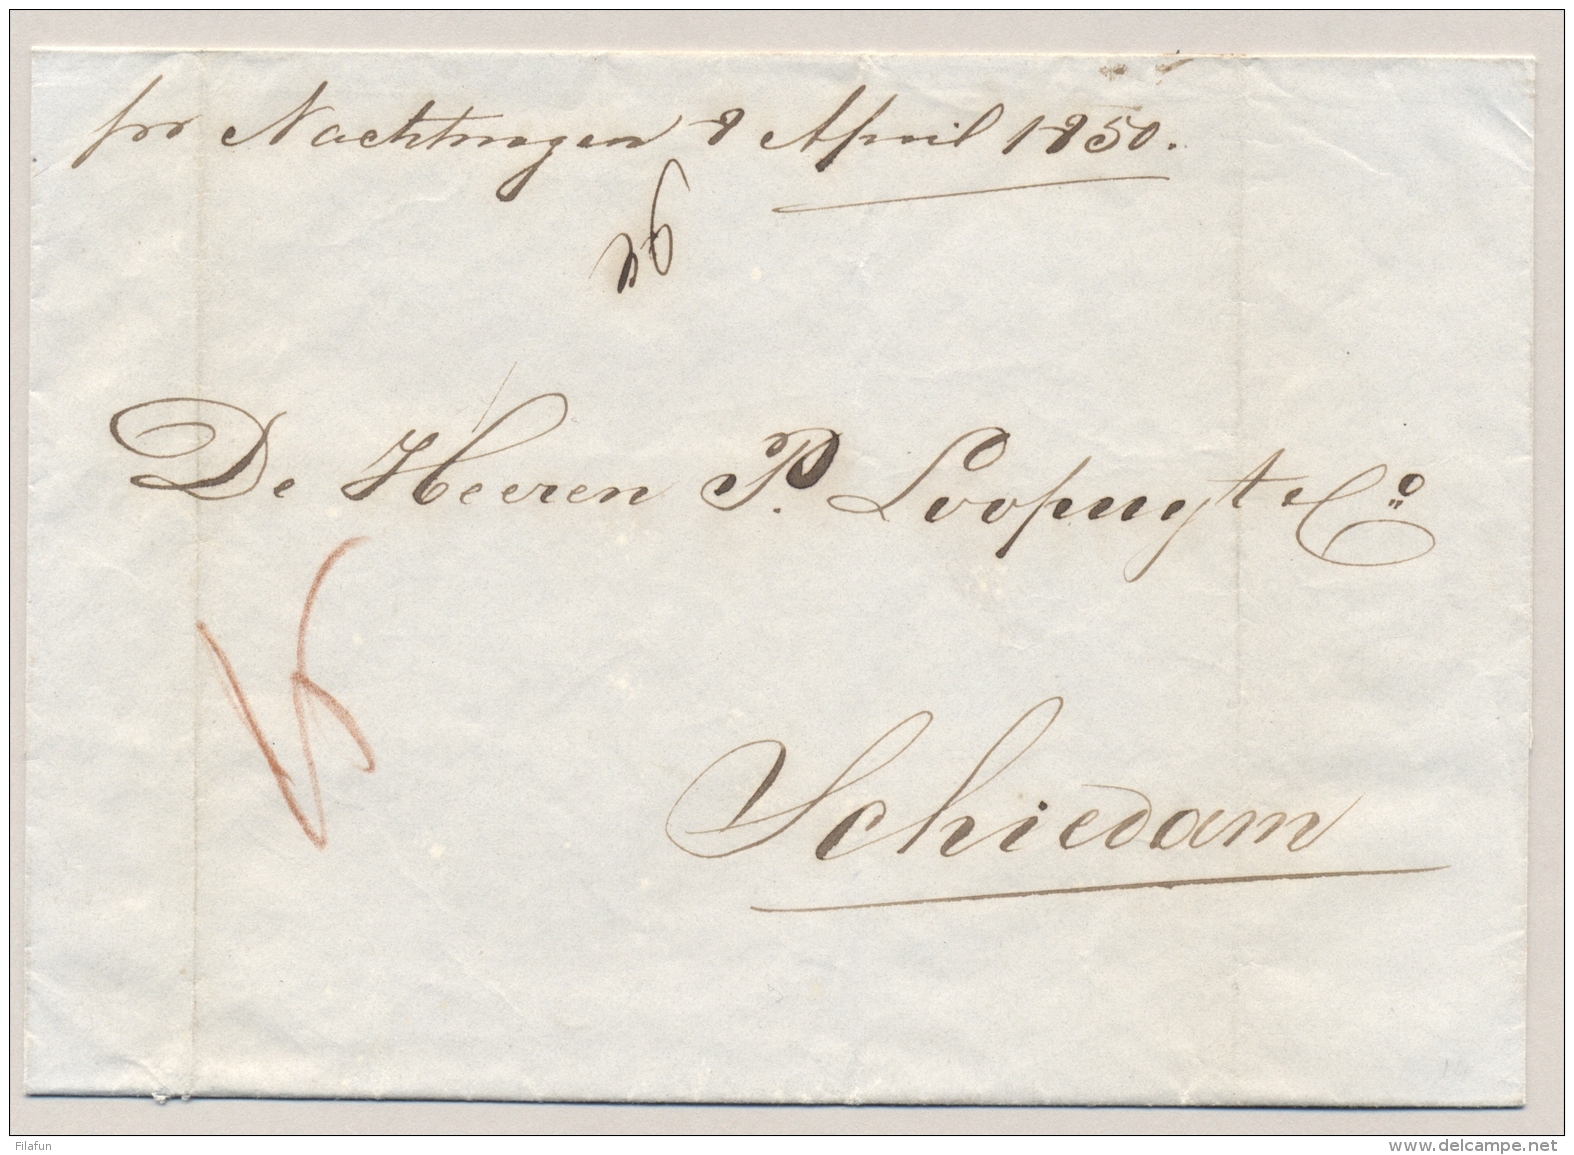 pr Nachtwagen 8 April 1850.
De Heeren P. Loopuyt & Co
Schiedam
Filafun
www.delcampe.net